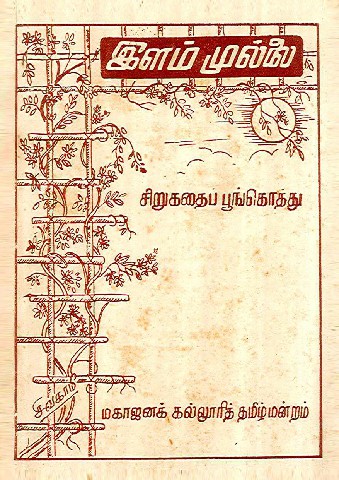 இளம் முல்லை
சிறுகதைப் பூங்கொத்து
மகாஜனக் கல்லூரித் தமிழ்மன்றம்